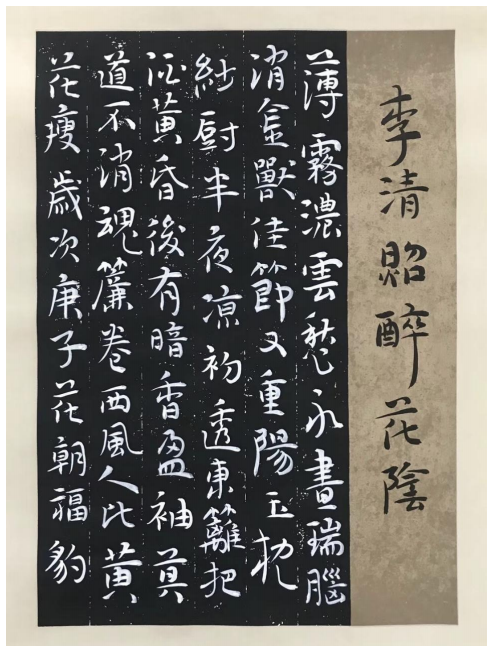 李清照醉花陰
薄霧濃雲愁永晝瑞腦
消金獸佳節又重陽玉枕
紗廚半夜涼初透東籬把
酒黃昏後有暗香盈袖莫
道不消魂簾卷西風人比黃
花瘦歲次庚子花朝福豹